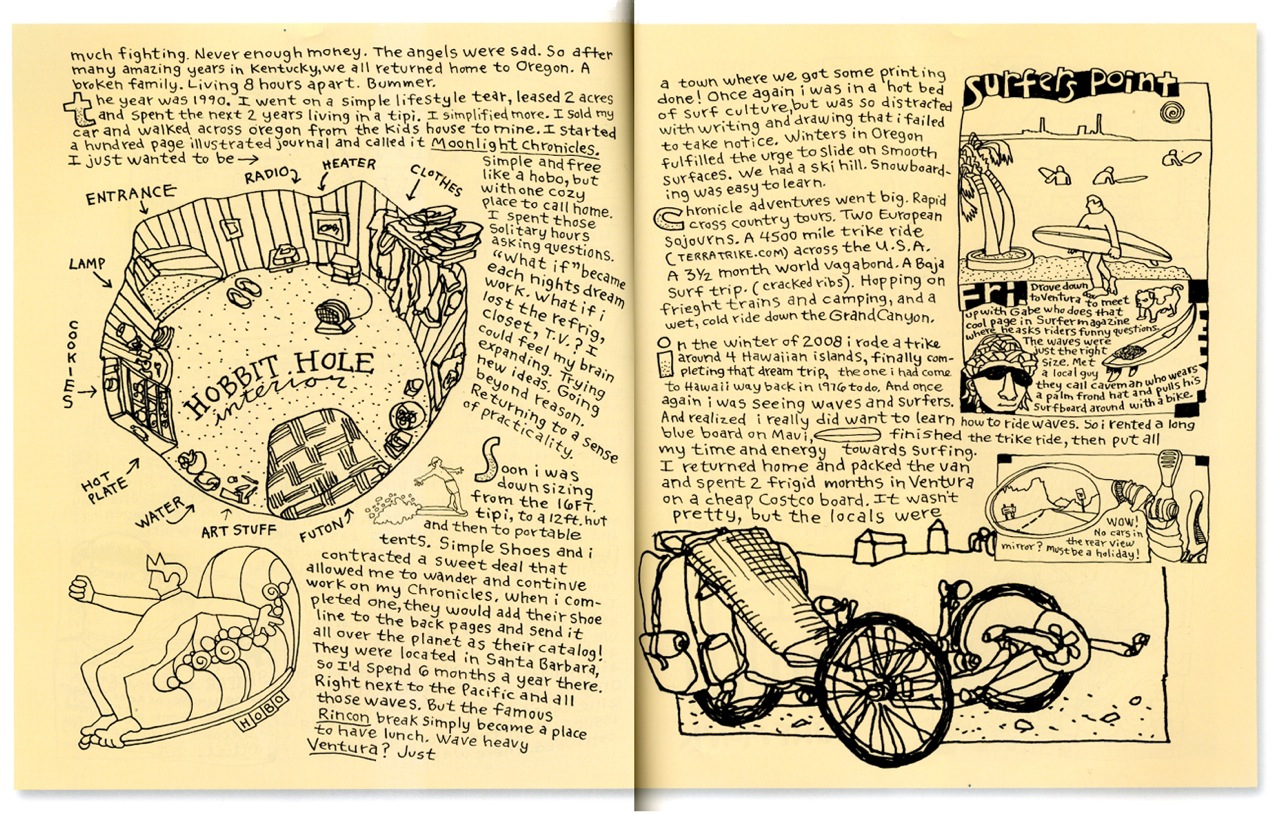 much fighting. Never enough money. The angels were sad. So after
many amazing years in Kentucky, we all returned home to Oregon. A
broken family. Living 8 hours apart. Bummer.
the year was 1990. I went on a simple lifestyle tear, leased 2 acres
and spent the next 2 years living in a tipi. I simplified more. I sold my
car and walked across oregon from the kids house to mine. I started
a hundred page illustrated journal and called it Moonlight Chronicles.
I just wanted to be →
Simple and free
like a hobo, but
with one cozy
place to call home.
I spent those
solitary hours
asking questions.
"what if" became
each nights dream
work. What if i
lost the refrig,
closet, T.V.? I
could feel my brain
expanding. Trying
new ideas. Going
beyond reason.
Returning to a sense
of practicality.
ENTRANCE
RADIO
HEATER
CLOTHES
LAMP
COOKIES
HOT
PLATE
WATER
ART STUFF
FUTON
HOBBIT HOLE
interior
Soon i was
down sizing
from the 16FT.
tipi, to a 12ft. hut
and then to portable
tents. Simple Shoes and i
contracted a sweet deal that
allowed me to wander and continue
work on my Chronicles. When i com-
pleted one, they would add their shoe
line to the back pages and send it
all over the planet as their catalog!
They were located in Santa Barbara,
so I'd spend 6 months a year there.
Right next to the Pacific and all
those waves. But the famous
Rincon break simply became a place
to have lunch. Wave heavy
Ventura? Just
HOBO
a town where we got some printing
done! Once again i was in a 'hot bed
of surf culture, but was so distracted
with writing and drawing that i failed
to take notice. Winters in Oregon
fulfilled the urge to slide on smooth
surfaces. We had a ski hill. Snowboard-
ing was easy to learn.
Chronicle adventures went big. Rapid
cross country tours. Two European
Sojourns. A 4500 mile trike ride
(TERRATRIKE.COM) across the U.S.A.
A 3½ month world vagabond. A Baja
Surf trip. (cracked ribs). Hopping on
frieght trains and camping, and a
wet, cold ride down the Grand Canyon.
in the winter of 2008 i rode a trike
around 4 Hawaiian islands, finally com-
pleting that dream trip, the one i had come
to Hawaii way back in 1976 to do. And once
again i was seeing waves and surfers.
And realized i really did want to learn how to ride waves. So i rented a long
blue board on Maui, finished the trike ride, then put all
my time and energy towards surfing.
I returned home and packed the van
and spent 2 frigid months in Ventura
on a cheap Costco board. It wasn't
pretty, but the locals were
surfers point
FRI
Drove down
to Ventura to meet
up with Gabe who does that
cool page in Surfer magazine
where he asks riders funny questions.
The waves were
just the right
size. Met
a local guy
they call caveman who wears
a palm frond hat and pulls his
surfboard around with a bike.
WOW!
No cars in
the rear view
mirror? Must be a holiday!